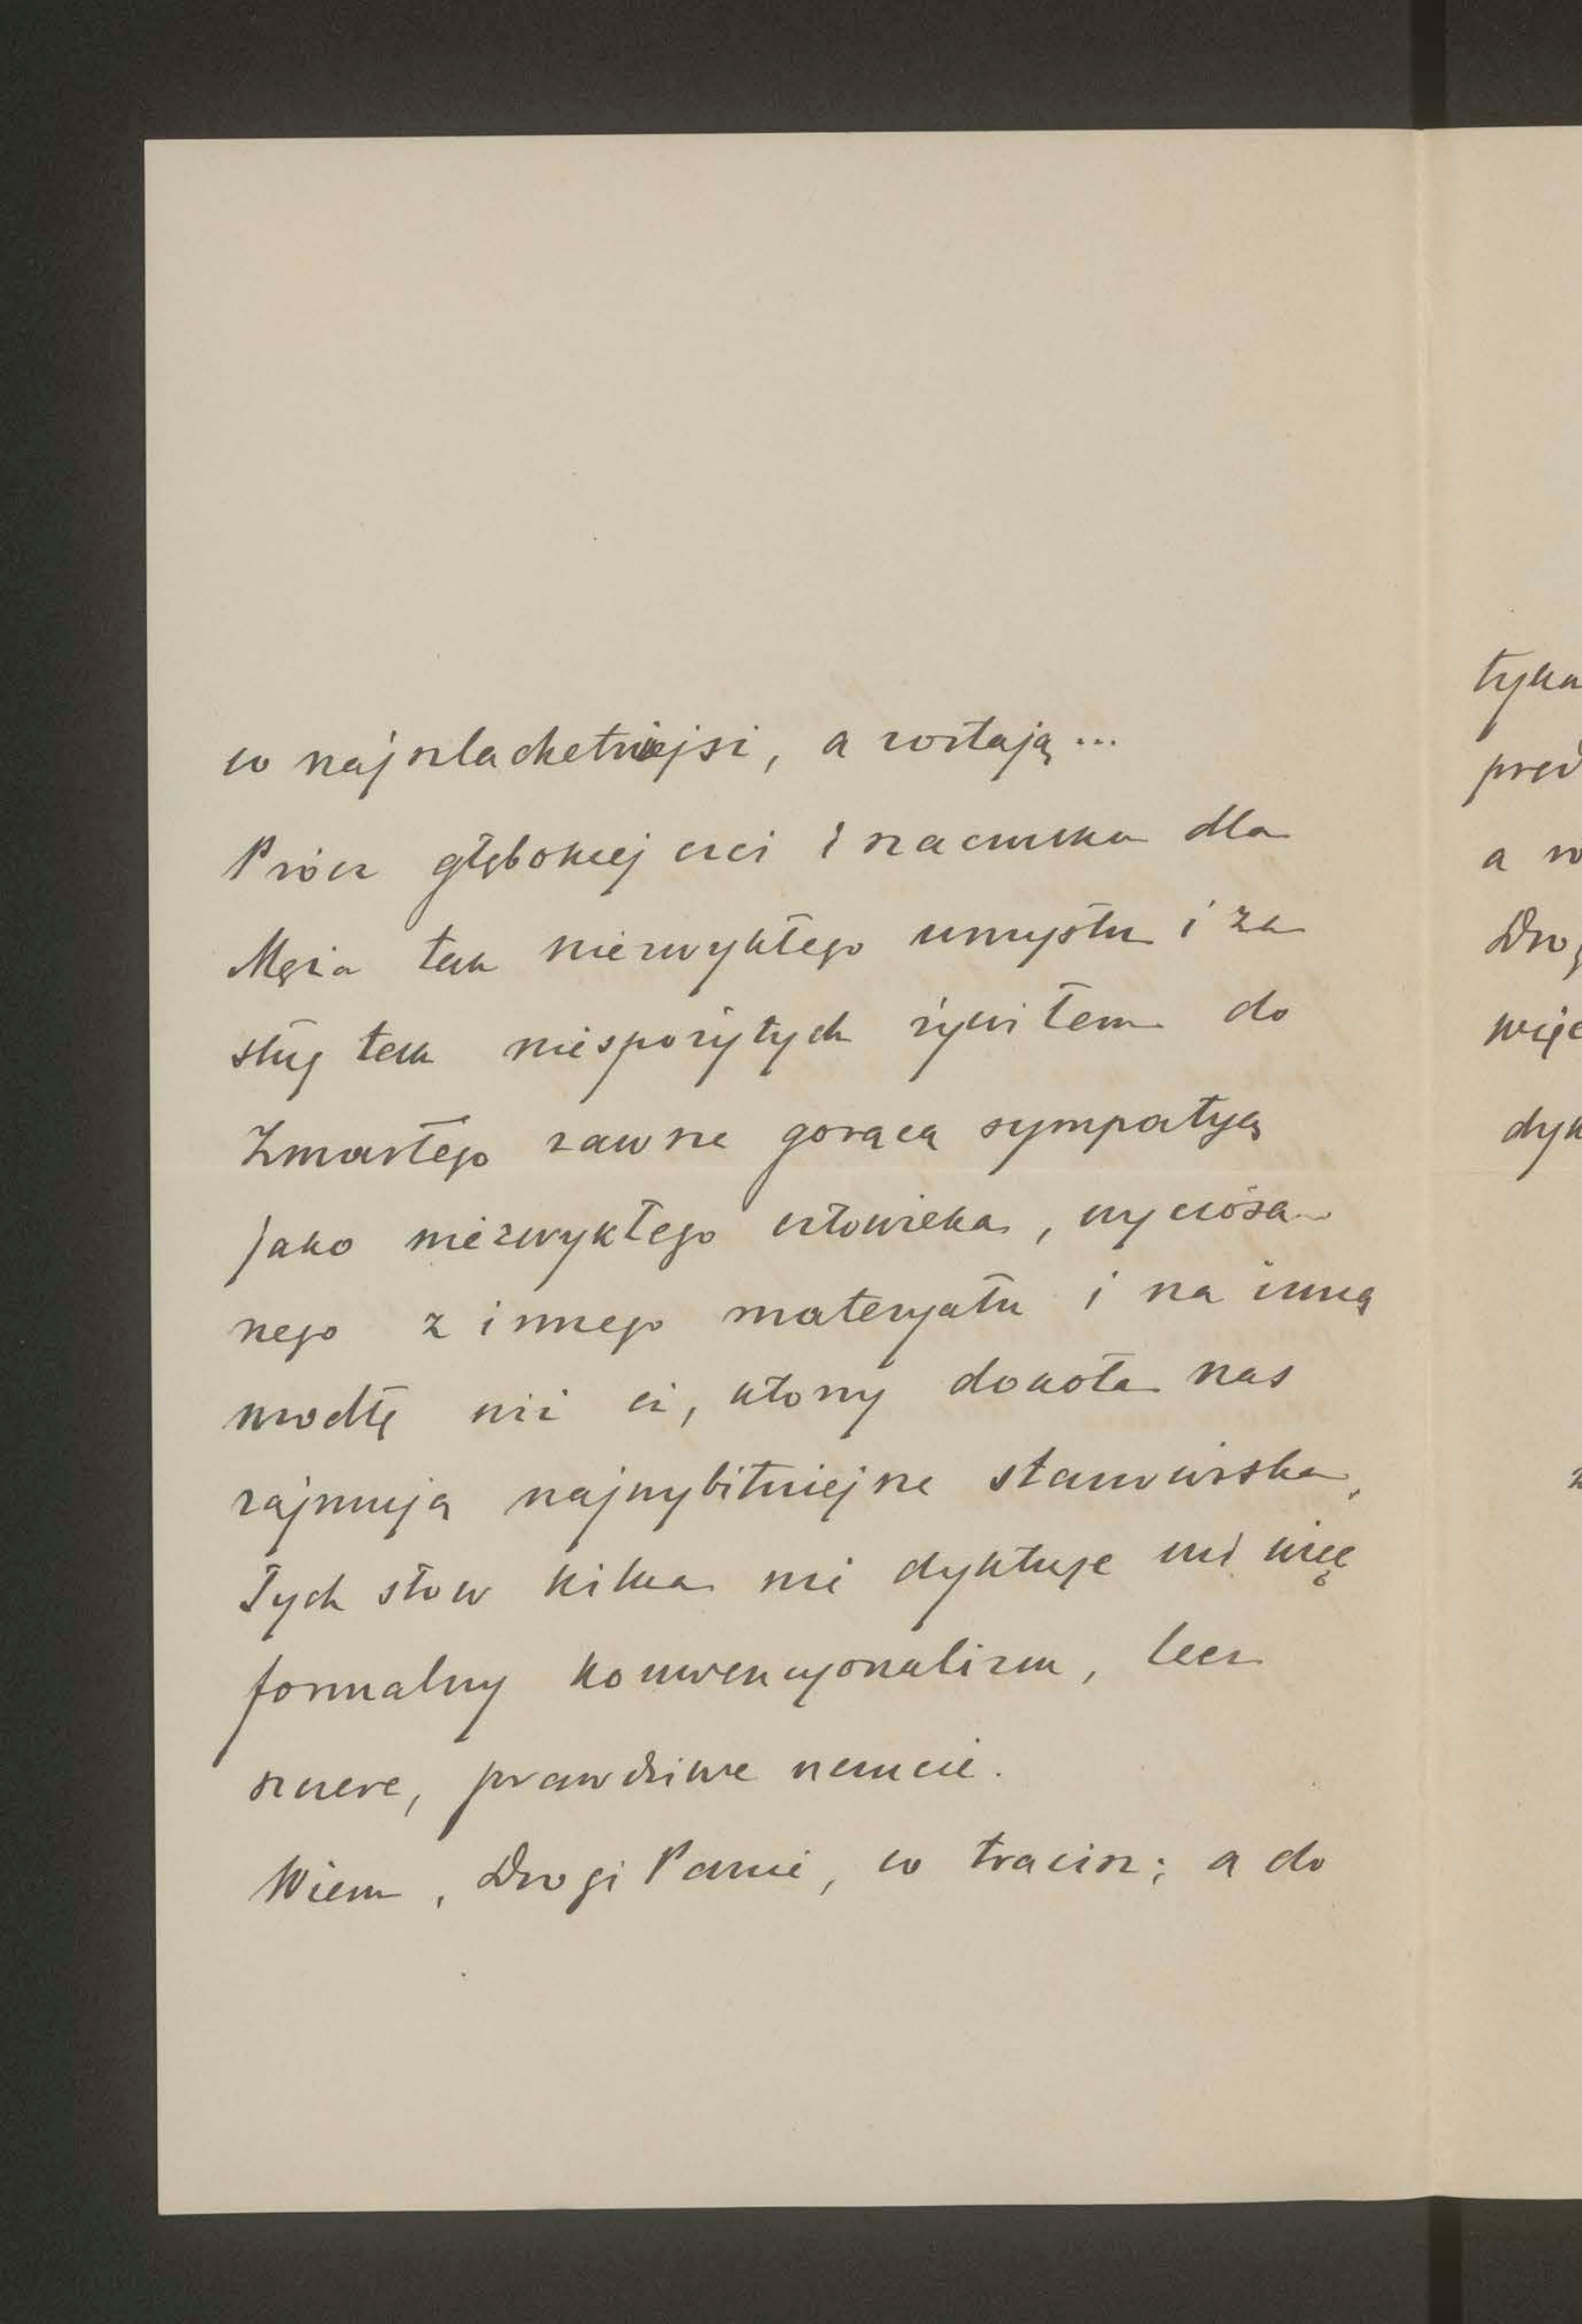 co najszlachetniejsi, a zostają...
Prócz głębokiej czci i szacunku dla
Męża tak niezwykłego umysłu i za
sług tak niespożytych żywiłem do
Zmarłego zawsze gorącą sympatyą
jako niezwykłego człowieka, wyciosa-
nego z innego materyału i na inną
modłę niż ci, którzy dokoła nas
zajmują najwybitniejsze stanowiska,
Tych słow kilka nie dyktuje mi więc
formalny konwencyonalizm, lecz
szczere, prawdziwe uczucie.
Wiem, Drogi Panie, co tracisz; a do
tyka
a
Dro
więc
dyk